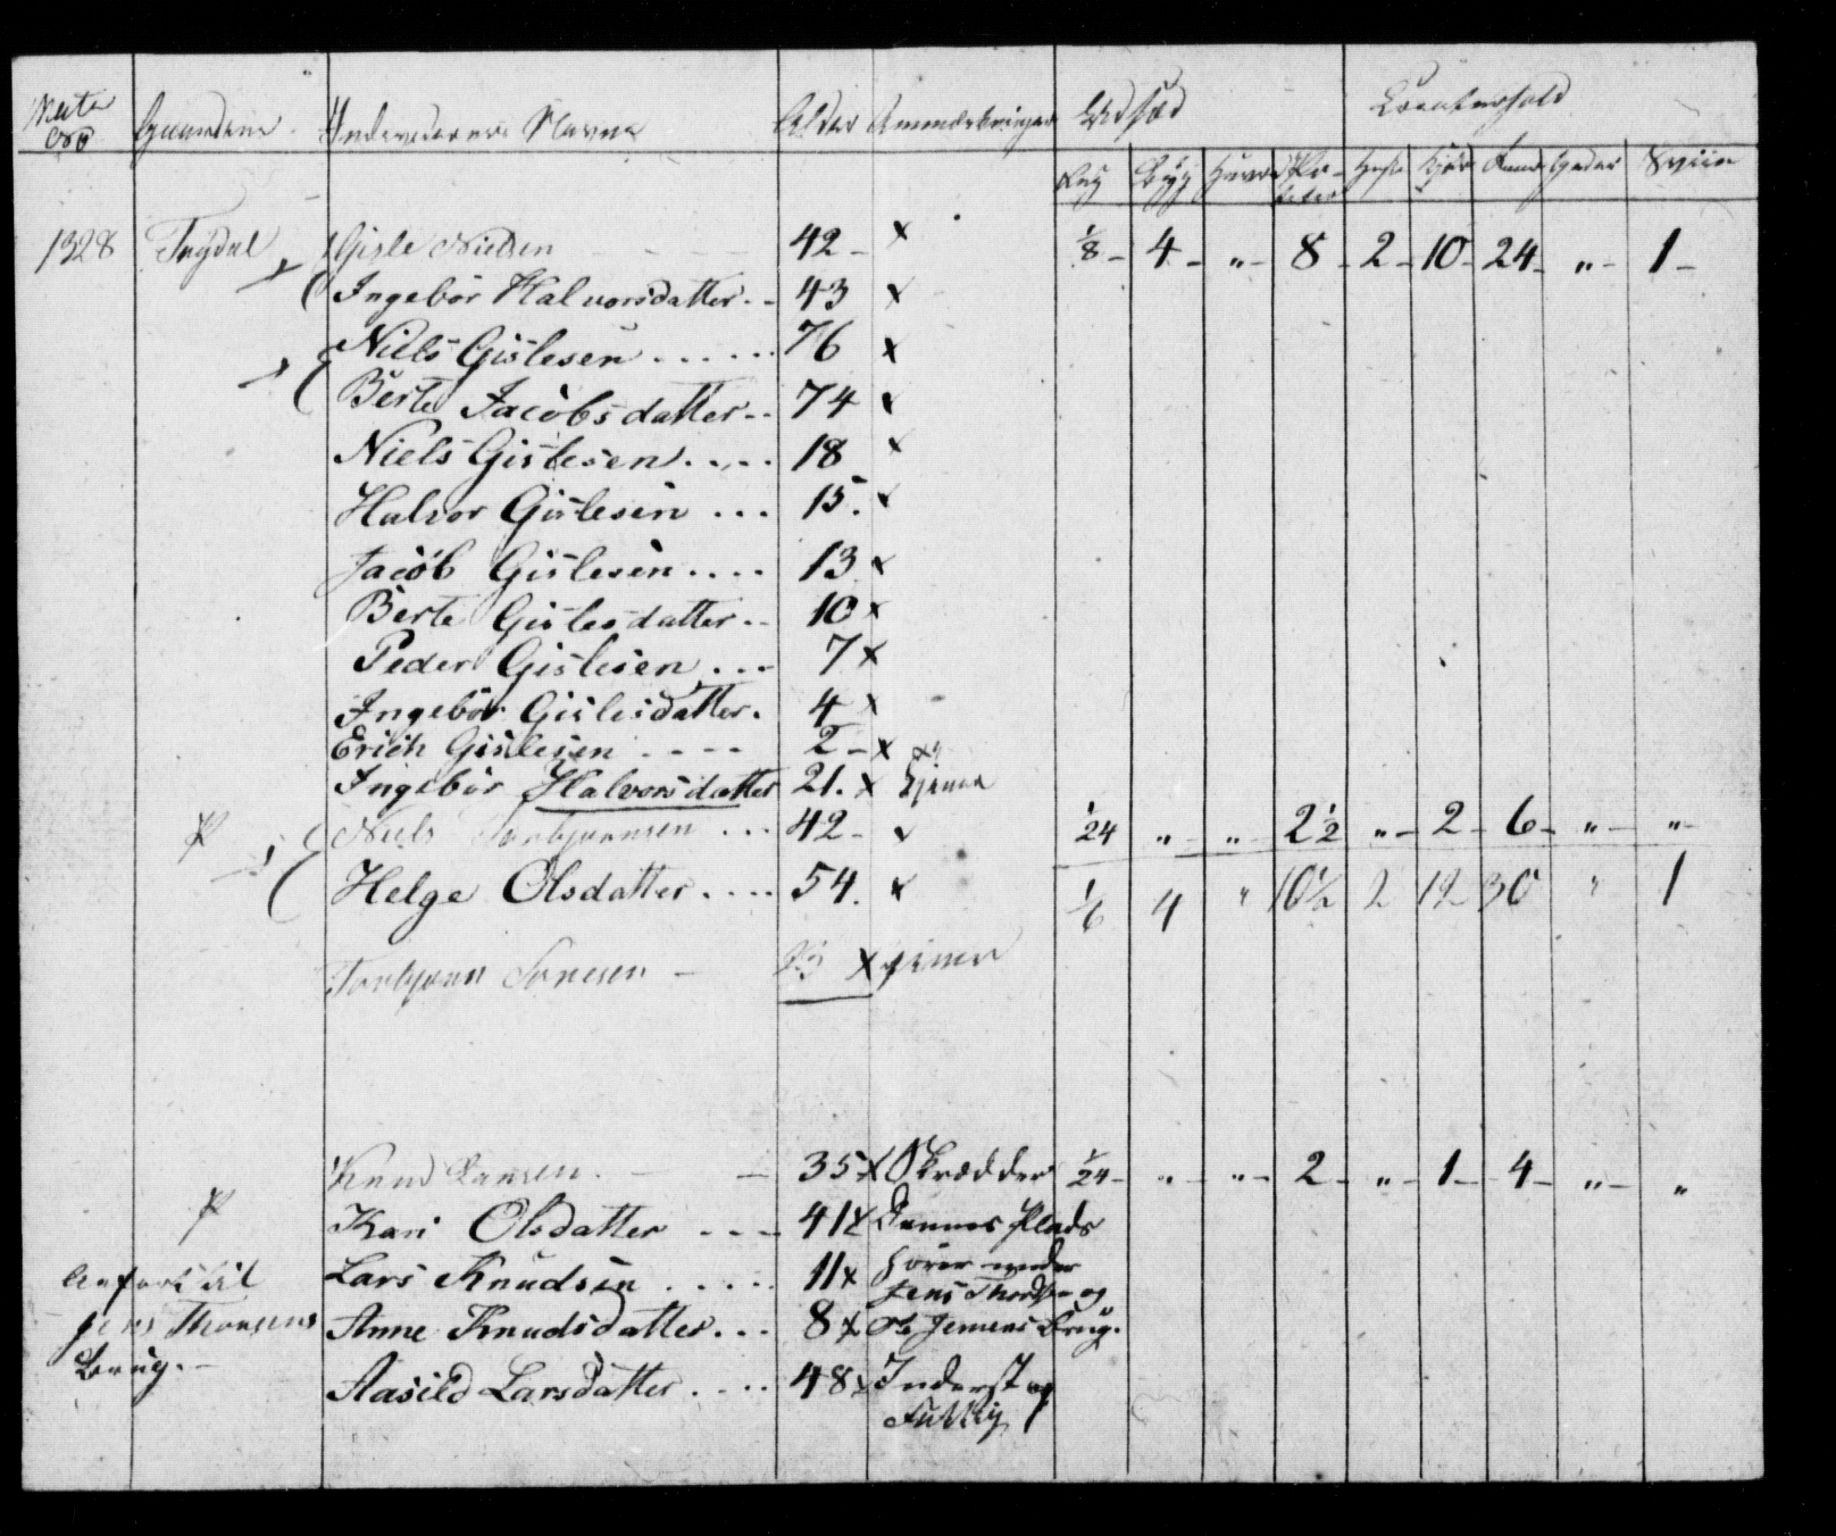 No Gaardene Indvaanernes Navne Alder Anmærkninger Udsæd Creaturhold
Rug Byg Havre Po-teter Heste Kjør Faar Geder Sviin
1328 Gisle Nielsen 42 - x 1/8 - 4 - " - 8 - 2 - 10 - 24 - " - 1 -
Ingebør Halvorsdatter - - 43 x
Niels Gislesen ...... 76 x
Berte Jacobsdatter - - 74 x
Niels Gislesen ..... 18 x
Halvor Gislesen ... 15. x
Jacob Gislesen .... 13 x
Berte Gislesdatter .. 10 x
Peder Gislesen ... 7 x
Ingebør Gislesdatter. 4 x
Erich Gislesen - - - - 2 - x
Ingebør Halvorsdatter 21. x tjener
Niels Torbjørnsen ... 42 - x 1/24 " - " - 2 1/2 " - 2 - 6 - " - " -
Helge Olsdatter .... 54. x 1/6 4 " 10 1/2 2 12 30 " 1
Torbjørn - x tjener
Knud Larsen. - - 35 x Skrædder 1/24 - " - " - 2 - " - 1 - 4 - " - "
Kari Olsdatter - - - 41 x Dennes Plads
Anført til Lars Knudsen ..... 11 x hører under
Jens Thorsens Anne Knudsdatter ... 8 x Jens Thords. og
Brug. - Ole Jensens Brug.
Aasild Larsdatter .... 48 x Inderst og
Fattig